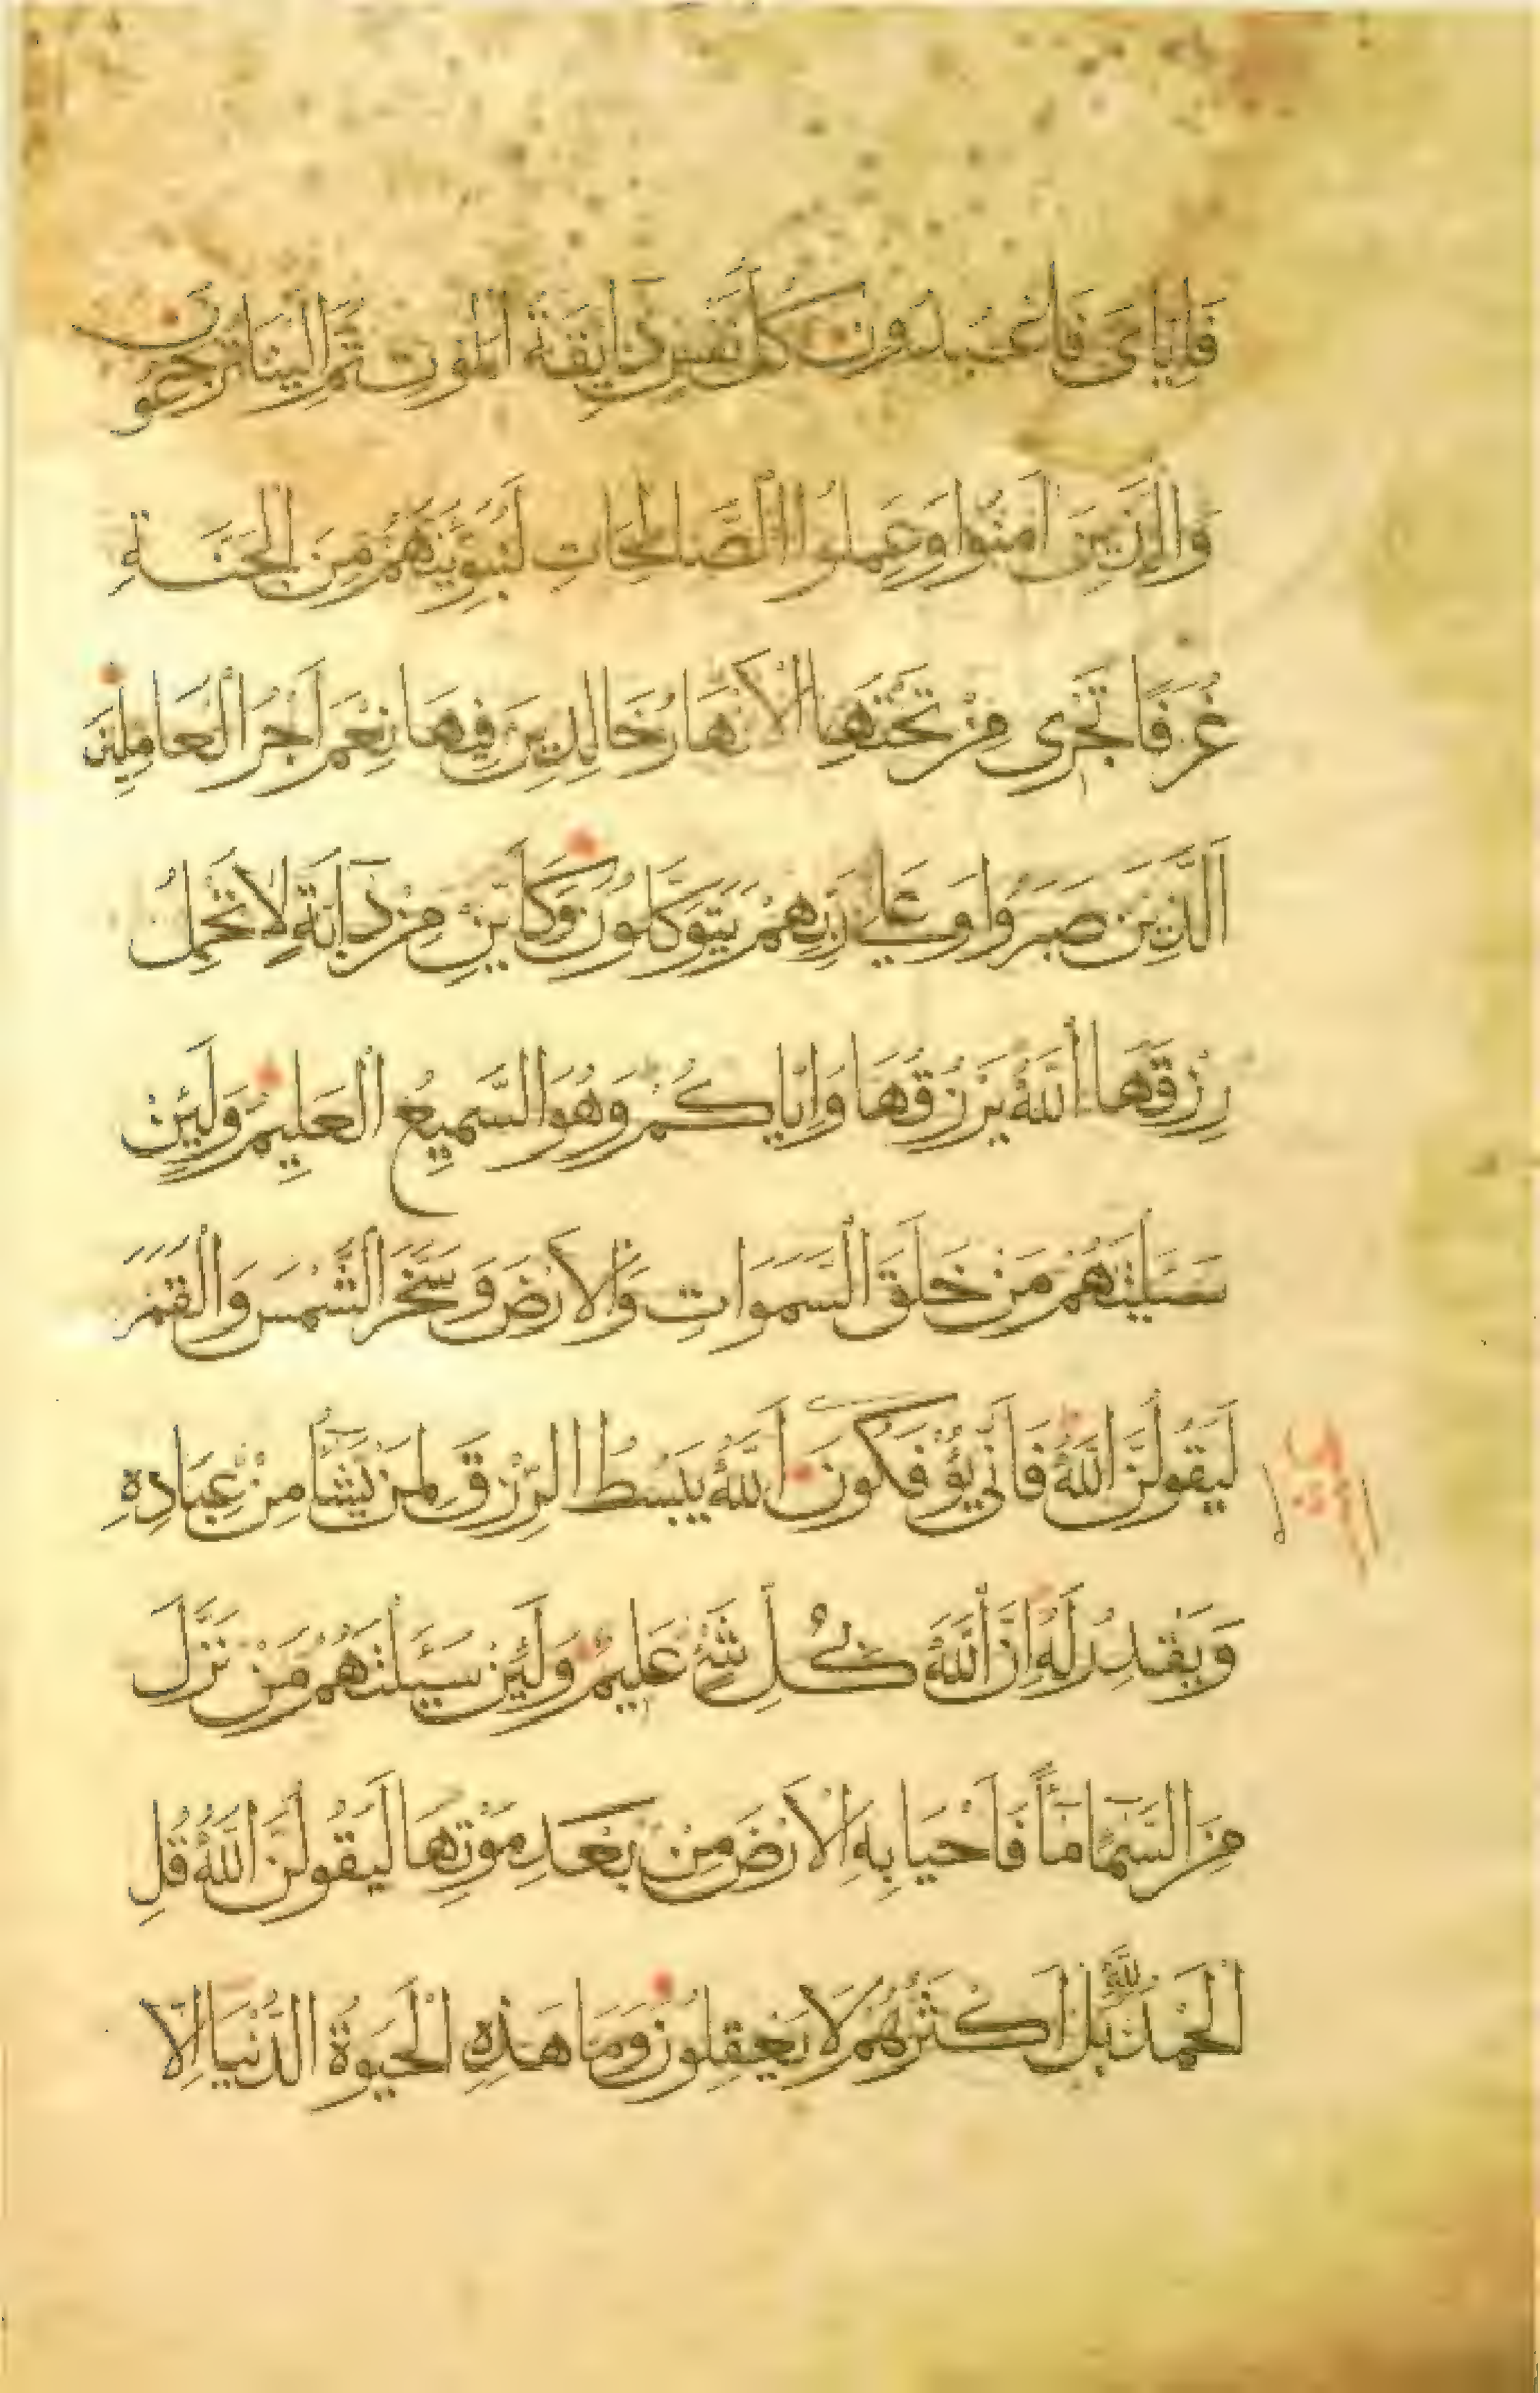 فَإِيَّايَ فَاعْبُدُونِ كُلُّ نَفْسٍ ذَايِقَةُ الْمَوْتِ ثُمَّ إِلَيْنَا تُرْجَعُونَ
وَالَّذِينَ آمَنُوا وَعَمِلُوا الصَّالِحَاتِ لَنُبَوِّئَنَّهُمْ مِنَ الْجَنَّةِ
غُرَفًا تَجْرِى مِنْ تَحْتِهَا الْأَنْهَارُ خَالِدِينَ فِيهَا نِعْمَ أَجْرُ الْعَامِلِينَ
اَلَّذِينَ صَبَرُوا وَعَلَى رَبِّهِمْ يَتَوَكَّلُونَ وَكَأَيِّنْ مِنْ دَآبَّةٍ لَا تَحْمِلُ
رِزْقَهَا اَللَّهُ يَرْزُقُهَا وَإِيَّاكُمْ وَهُوَ السَّمِيعُ الْعَلِيمُ وَلَئِنْ
سَأَلْتَهُمْ مَنْ خَلَقَ السَّمَوَاتِ وَالْأَرْضَ وَسَخَّرَ الشَّمْسَ وَالْقَمَرَ
لَيَقُولُنَّ اللَّهُ فَأَنَّى يُؤْفَكُونَ اَللَّهُ يَبْسُطُ الرِّزْقَ لِمَنْ يَشَآءُ مِنْ عِبَادِهِ
وَيَقْدِرُ لَهُ إِنَّ اللَّهَ بِكُلِّ شَيْءٍ عَلِيمٌ وَلَئِنْ سَئَلْتَهُمْ مَنْ نَزَّلَ
مِنَ السَّمَآءِ مَآءً فَأَحْيَا بِهِ الْأَرْضَ مِنْ بَعْدِ مَوْتِهَا لَيَقُولُنَّ اللَّهُ قُلِ
الْحَمْدُ لِلَّهِ بَلْ أَكْثَرُهُمْ لَا يَعْقِلُونَ وَمَا هَذِهِ الْحَيَوةُ الدُّنْيَا إِلَّا